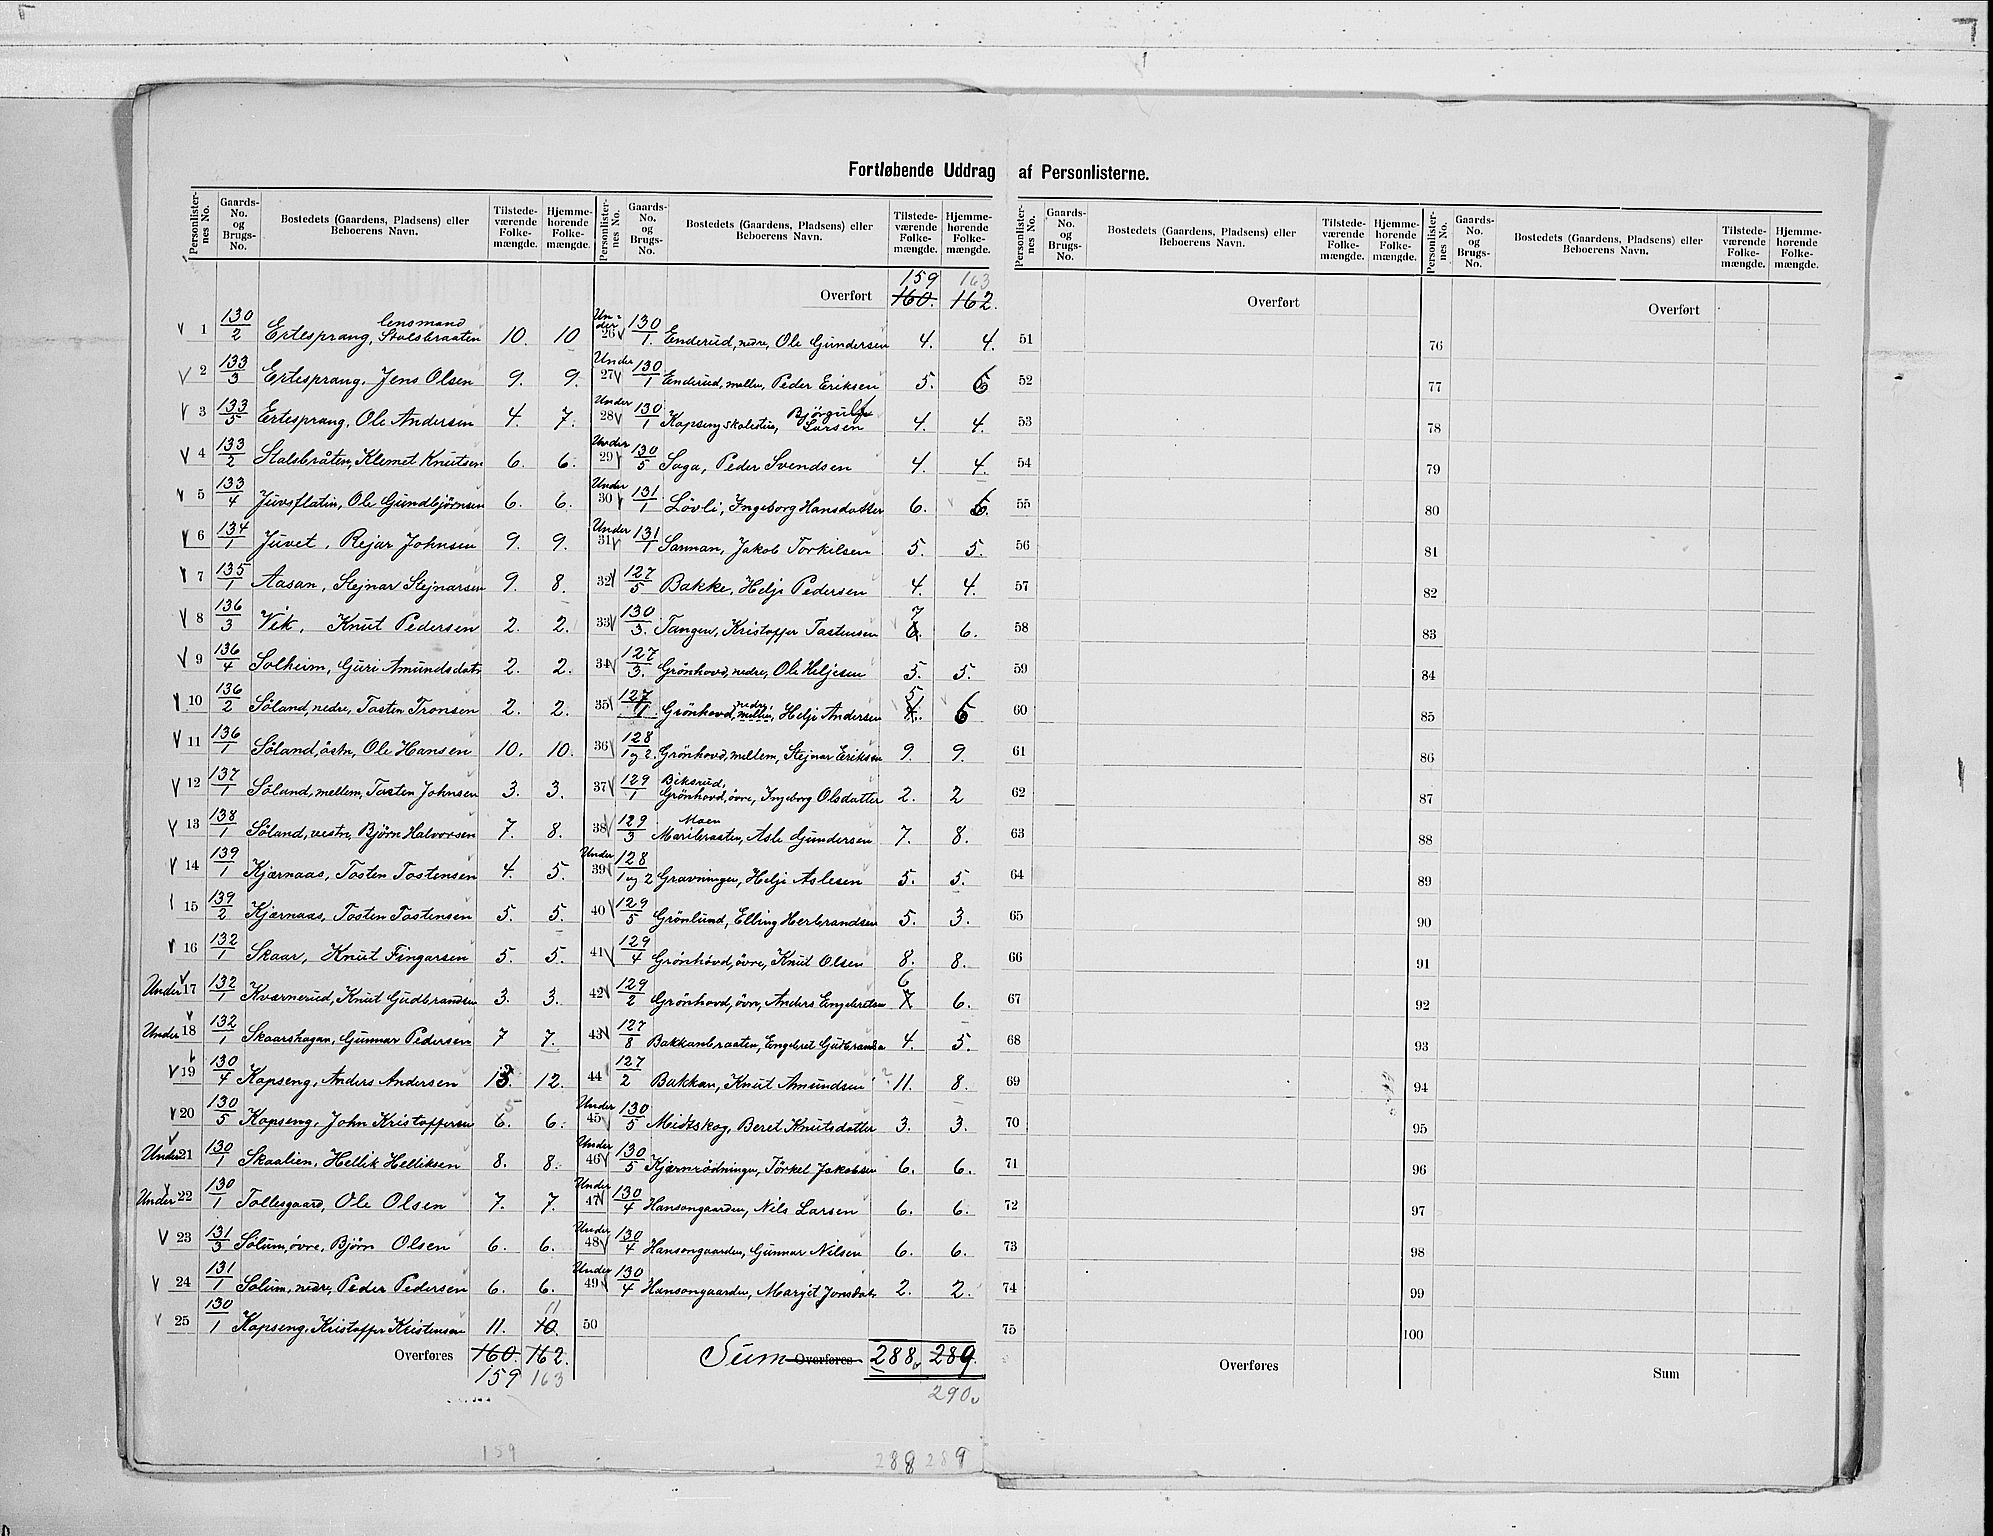 Fortløbende Uddrag af Personlisterne.
Personlister-nes No. Gaards-No. og Brugs-No. Bostedets (Gaardens, Pladsens) eller Beboerens Navn. Tilstede-værende Folke-mængde. Hjemme-hørende Folke-mængde.
1 130/2 Ertesprang, lensmand Stalsbraaten 10. 10
2 133/3 Ertesprang, Jens Olsen 9. 9.
3 133/5 Ertesprang, Ole Andersen 4. 7.
4 133/2 Stalsbråten, Klemet Knutsen 6. 6.
5 133/4 Juvsflatin, Ole Gundbjörnsen 6. 6.
6 134/1 Juvet, Rejar Johnsen 9. 9.
7 135/1 Aasan, Stejnar Stejnarsen 9. 8.
8 136/3 Vik, Knut Pedersen 2. 2.
9 136/4 Solheim, Guri Amundsdatr 2. 2.
10 136/2 Söland, nedre, Tosten Tronsen 2. 2.
11 136/1 Söland, östre, Ole Hansen 10. 10.
12 137/1 Söland, mellem, Tosten Johnsen 3. 3.
13 138/1 Söland, vestre, Björn Halvorsen 7. 8.
14 139/1 Kjærnaas, Tosten Tostensen 4. 5.
15 139/2 Kjærnaas, Tosten Tostensen 5. 5.
16 132/1 Skaar, Knut Fingarsen 5. 5.
Under 17 132/1 Kværnerud, Knut Gudbrandsen 3. 3.
Under 18 132/1 Skaarshagan, Gunnar Pedersen 7 7.
19 130/4 Kopseng, Anders Andersen 12.
20 130/5 Kopseng, John Kristoffersen 6. 5 6.
Under 21 130/1 Skaalien, Hellik Helliksen 8. 8.
Under 22 130/1 Tollesgaard, Ole Olsen 7. 7.
23 131/3 Solum, övre, Björn Olsen 6. 6.
24 131/1 Solum, nedre, Peder Pedersen 6. 6.
25 130/1 Kopseng, Kristoffer Kristensen 11. 10. 11
Overføres 160. 162.
159 163
Personlister-nes No. Gaards-No. og Brugs-No. Bostedets (Gaardens, Pladsens) eller Beboerens Navn. Tilstede-værende Folke-mængde. Hjemme-hørende Folke-mængde.
159 163
Overført 160. 162.
Under 26 130/1 Enderud, nedre, Ole Gundersen 4. 4.
Under 27 130/1 Enderud, mellem, Peder Eriksen 5.
Under 28 130/1 Kopseng skolestue, Björgulf Larsen 4. 4.
Under 29 130/5 Saga, Peder Svendsen 4. 4.
Under 30 131/1 Lövli, Ingeborg Hansdatter 6.
Under 31 131/1 Sanman, Jakob Torkilsen 5. 5.
32 127/5 Bakke, Helje Pedersen 4. 4.
33 130/3. Tangen, Kristoffer Tostensen 7 6. 6.
34 127/3. Grönhovd, nedre, Ole Heljesen 5. 5.
35 127/1 Grönhovd, mellem, nedre, Helje Andersen 5 4.
36 128/1 og 2. Grönhovd, mellem, Stejnar Eriksen 9. 9.
37 129/1 Biksrud, Grönhovd, övre, Ingeborg Olsdatter 2. 2
38 129/3 Moen Maribraaten, Asle Gundersen 7. 8.
Under 39 128/1 og 2 Gravningen, Helje Aslesen 5. 5.
40 129/5 Grönlund, Elling Herbrandsen 5. 3.
41 129/4 Grönhovd, övre, Knut Olsen 8. 8.
42 129/2 Grönhovd, övre, Anders Engebretsen 6 7 6.
43 127/8 Bakkanbraaten, Engebret Gulbrandsen 4. 5.
44 127/2 Bakkan, Knut Amundsen ? 11. 8.
Under 45 130/5 Midtskog, Beret Knutsdatter 3. 3.
Under 46 130/5 Kjærnrödningen, Törkel Jakobsen 6. 6.
Under 47 130/4 Hansongaarden, Nils Larsen 6. 6.
Under 48 130/4 Hansongaarden, Gunnar Nilsen 6. 6.
Under 49 130/4 Hansongaarden, Margit Jonsdatr 2. 2.
50
Sum Overføres 288. 289.
290
159 288 289
Personlister-nes No. Gaards-No. og Brugs-No. Bostedets (Gaardens, Pladsens) eller Beboerens Navn. Tilstede-værende Folke-mængde. Hjemme-hørende Folke-mængde.
Overført
51
52
53
54
55
56
57
58
59
60
61
62
63
64
65
66
67
68
69
70
71
72
73
74
75
Overføres
Personlister-nes No. Gaards-No. og Brugs-No. Bostedets (Gaardens, Pladsens) eller Beboerens Navn. Tilstede-værende Folke-mængde. Hjemme-hørende Folke-mængde.
Overført
76
77
78
79
80
81
82
83
84
85
86
87
88
89
90
91
92
93
94
95
96
97
98
99
100
Sum